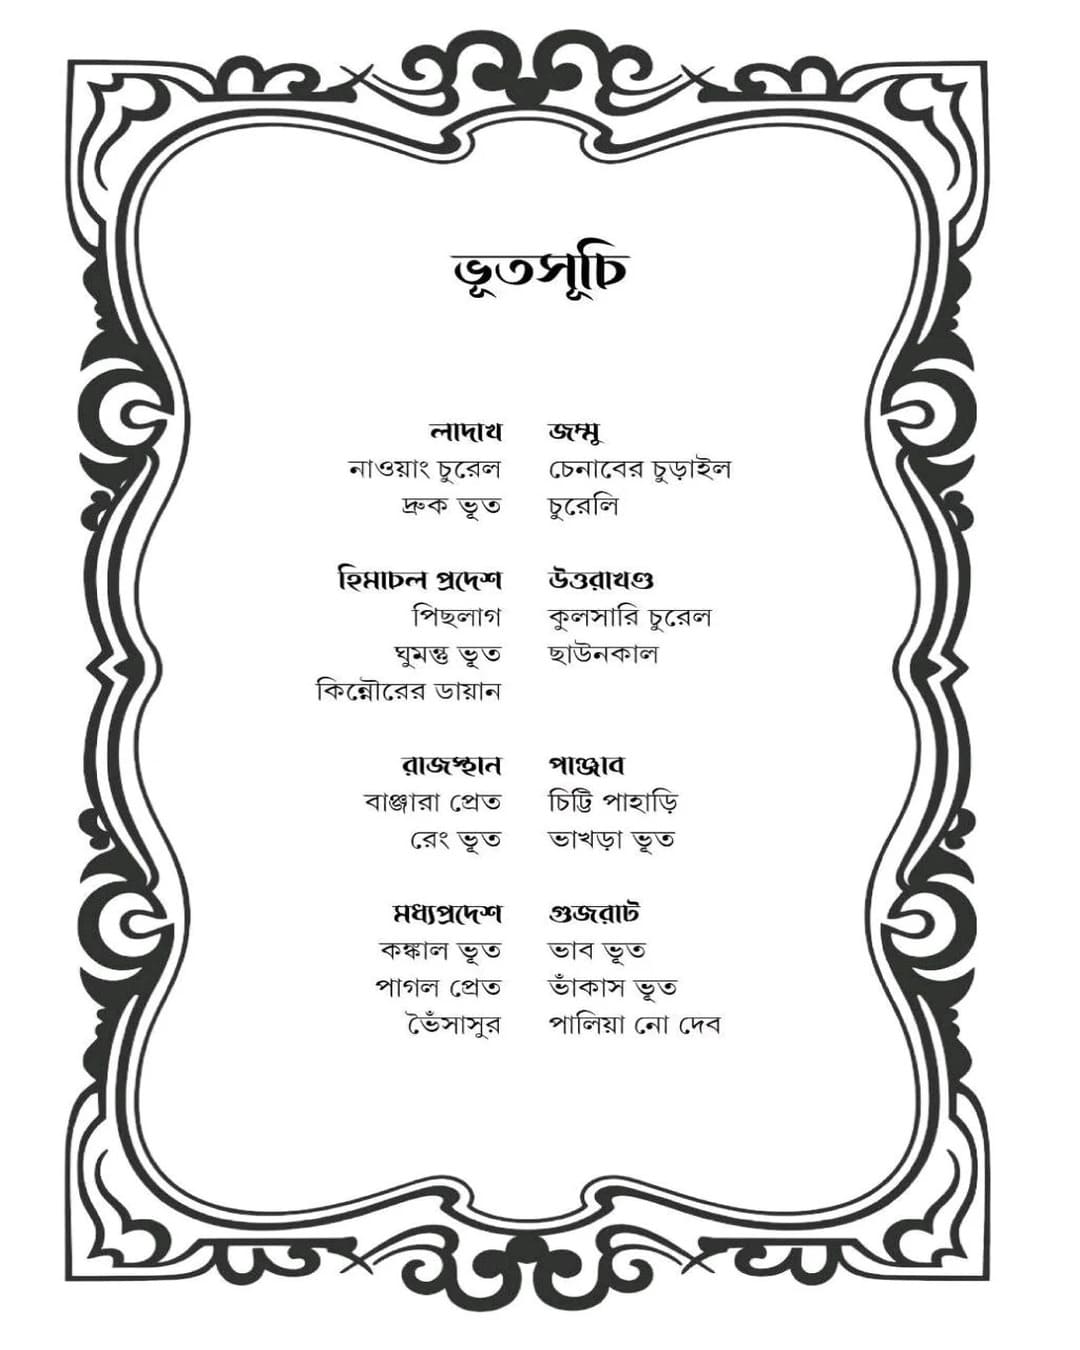 ভূতসূচি
লাদাখ
নাওয়াং চুরেল
দ্রুক ভূত
জম্মু
চেনাবের চুড়াইল
চুরেলি
হিমাচল প্রদেশ
পিছলাগ
ঘুমন্তু ভূত
কিন্নৌরের ডায়ান
উত্তরাখণ্ড
কুলসারি চুরেল
ছাউনকাল
রাজস্থান
বাঞ্জারা প্রেত
রেং ভূত
পাঞ্জাব
চিট্টি পাহাড়ি
ভাখড়া ভূত
মধ্যপ্রদেশ
কঙ্কাল ভূত
পাগল প্রেত
ভৈঁসাসুর
গুজরাট
ভাব ভূত
ভাঁকাস ভূত
পালিয়া নো দেব